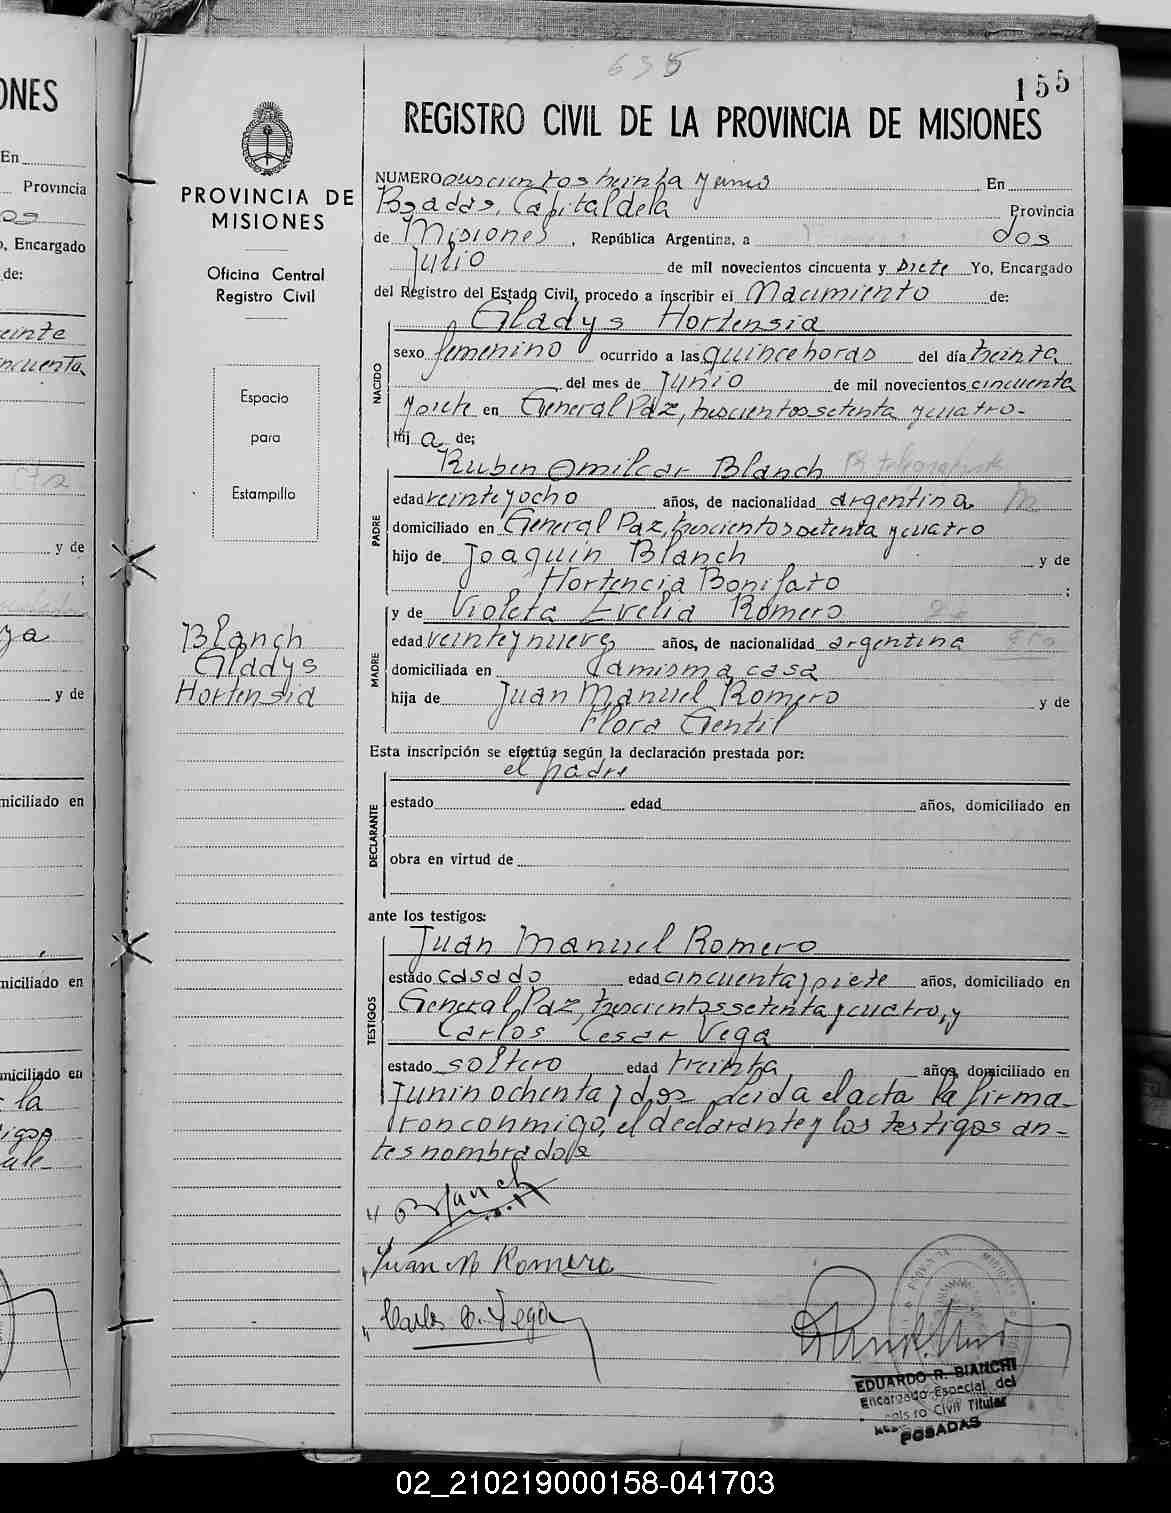 635
155
REGISTRO CIVIL DE LA PROVINCIA DE MISIONES
PROVINCIA DE
MISIONES
Oficina Central
Registro Civil
Espacio
para
Estampillo
Blanch
Gladys
Hortensia
NUMERO doscientos treinta y uno En
Posadas, Capital de la Provincia
de Misiones, República Argentina, a dos
Julio de mil novecientos cincuenta y siete Yo, Encargado
del Registro del Estado Civil, procedo a inscribir el Nacimiento de:
NACIDO
Gladys Hortensia
sexo femenino ocurrido a las quince horas del día treinta
del mes de Junio de mil novecientos cincuenta
y siete en General Paz, trescientos setenta y cuatro-
Hij a de;
PADRE
Ruben Omilcar Blanch
edad veinte y ocho años, de nacionalidad argentina
domiciliado en General Paz, trescientos setenta y cuatro
hijo de Joaquin Blanch y de
Hortencia Bonifato ;
MADRE
y de Violeta Evelia Romero
edad veinte y nueve años, de nacionalidad argentina
domiciliada en la misma casa
hija de Juan Manuel Romero y de
Flora Gentil
Esta inscripción se efectúa según la declaración prestada por:
DECLARANTE
el padre
estado edad años, domiciliado en
obra en virtud de
ante los testigos:
TESTIGOS
Juan Manuel Romero
estado casado edad cincuenta y siete años, domiciliado en
General Paz, trescientos setenta y cuatro, y
Carlos Cesar Vega
estado soltero edad treinta años, domiciliado en
Junin ochenta y dos leida el acta la firma-
ron conmigo, el declarante y los testigos an-
tes nombrados
Blanch
Juan M Romero
Carlos C. Vega
EDUARDO R. BIANCHI
Encargado Especial del
Registro Civil Titular
POSADAS
ONES
En
Provincia
Encargado
de:
y de
;
y de
miciliado en
niciliado en
miciliado en
la
02_210219000158-041703